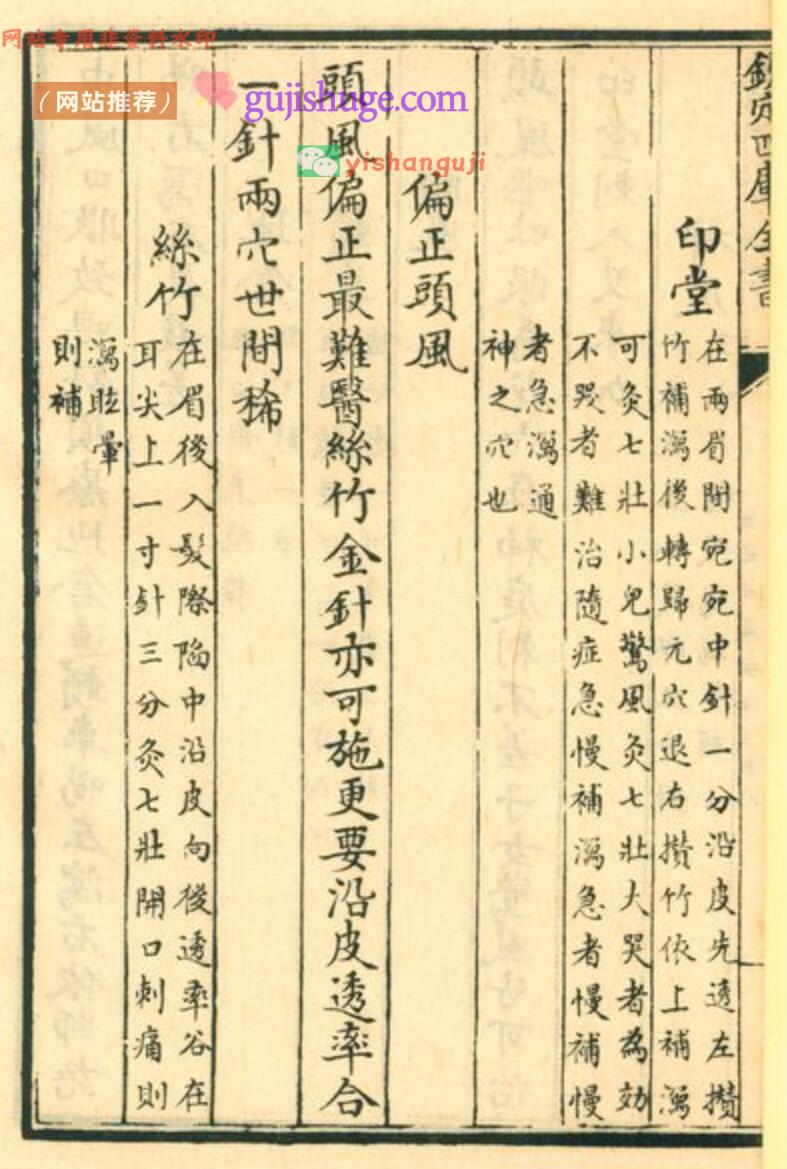 网站專用非資料水印
（网站推荐）
gujishage.com
yishanguji
欽定四庫全書
印堂
在兩眉間宛宛中針一分沿皮先透左攢
竹補瀉後轉歸元穴退右攢竹依上補瀉
可灸七壯小兒驚風灸七壯大哭者為効
不哭者難治隨症急慢補瀉急者慢補慢
者急瀉通
神之穴也
偏正頭風
頭風偏正最難醫絲竹金針亦可施更要沿皮透率合
一針兩穴世間稀
絲竹
在眉後入髮際陷中沿皮向後透率谷在
耳尖上一寸針三分灸七壯開口刺痛則
瀉眩暈
則補